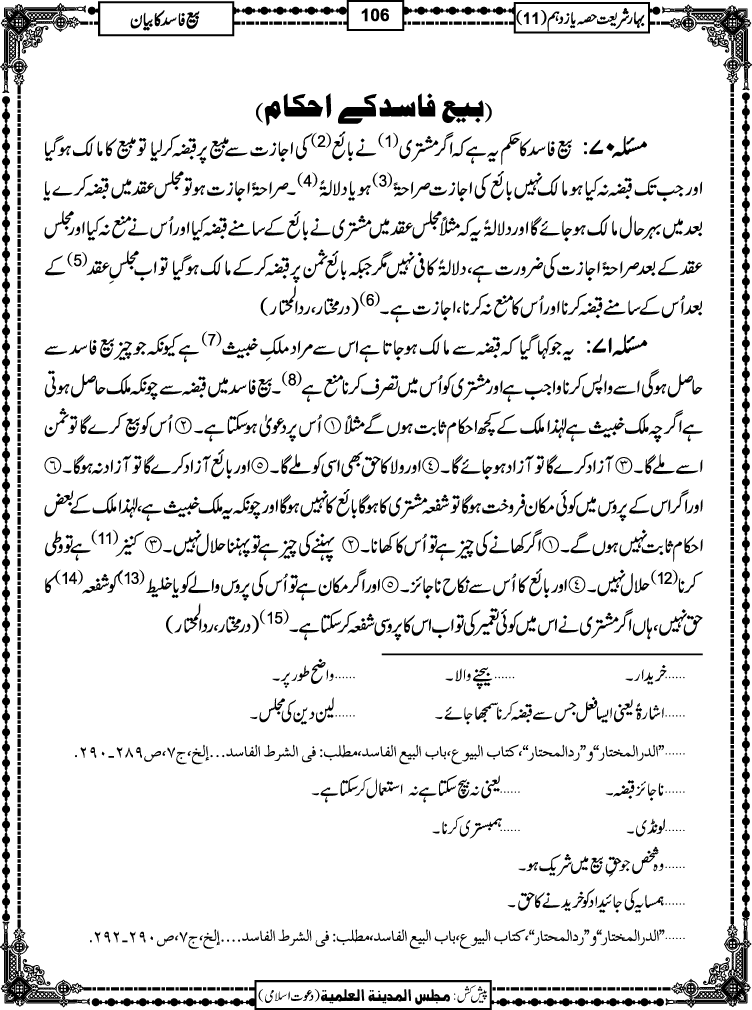 بہار شریعت حصہ یازدہم (11)
106
بیع فاسد کا بیان
(بیع فاسد کے احکام)
مسئلہ ۷۰: بیع فاسد کا حکم یہ ہے کہ اگر مشتری (1) نے بائع (2) کی اجازت سے مبیع پر قبضہ کر لیا تو مبیع کا مالک ہوگیا
اور جب تک قبضہ نہ کیا ہو مالک نہیں بائع کی اجازت صراحۃً (3) ہو یا دلالۃً (4)۔ صراحۃً اجازت ہو تو مجلس عقد میں قبضہ کرے یا
بعد میں بہر حال مالک ہو جائے گا اور دلالۃً یہ کہ مثلاً مجلس عقد میں مشتری نے بائع کے سامنے قبضہ کیا اور اُس نے منع نہ کیا اور مجلس
عقد کے بعد صراحۃً اجازت کی ضرورت ہے، دلالۃً کافی نہیں مگر جبکہ بائع ثمن پر قبضہ کر کے مالک ہوگیا تو اب مجلسِ عقد (5) کے
بعد اُس کے سامنے قبضہ کرنا اور اُس کا منع نہ کرنا، اجازت ہے۔ (6) (درمختار، ردالمحتار)
مسئلہ ۷۱: یہ جو کہا گیا کہ قبضہ سے مالک ہو جاتا ہے اس سے مراد ملکِ خبیث (7) ہے کیونکہ جو چیز بیع فاسد سے
حاصل ہوگی اسے واپس کرنا واجب ہے اور مشتری کو اُس میں تصرف کرنا منع ہے (8)۔ بیع فاسد میں قبضہ سے چونکہ ملک حاصل ہوتی
ہے اگرچہ ملک خبیث ہے لہٰذا ملک کے کچھ احکام ثابت ہوں گے مثلاً ① اُس پر دعویٰ ہوسکتا ہے۔ ② اُس کو بیع کرے گا تو ثمن
اسے ملے گا۔ ③ آزاد کرے گا تو آزاد ہو جائے گا۔ ④ اور ولا کا حق بھی اسی کو ملے گا۔ ⑤ اور بائع آزاد کرے گا تو آزاد نہ ہوگا۔ ⑥
اور اگر اس کے پروس میں کوئی مکان فروخت ہوگا تو شفعہ مشتری کا ہوگا بائع کا نہیں ہوگا اور چونکہ یہ ملک خبیث ہے، لہٰذا ملک کے بعض
احکام ثابت نہیں ہوں گے۔ ① اگر کھانے کی چیز ہے تو اُس کا کھانا۔ ② پہننے کی چیز ہے تو پہننا حلال نہیں۔ ③ کنیز (11) ہے تو وطی
کرنا (12) حلال نہیں۔ ④ اور بائع کا اُس سے نکاح ناجائز۔ ⑤ اور اگر مکان ہے تو اُس کی پروس والے کو یا خلیط (13) کو شفعہ (14) کا
حق نہیں، ہاں اگر مشتری نے اس میں کوئی تعمیر کی تو اب اس کا پروسی شفعہ کرسکتا ہے۔ (15) (درمختار، ردالمحتار)
......خریدار۔ ......بیچنے والا۔ ......واضح طور پر۔
......اشارۃً یعنی ایسا فعل جس سے قبضہ کرنا سمجھا جائے۔ ......لین دین کی مجلس۔
......"الدرالمختار" و"ردالمحتار"، کتاب البیوع، باب البیع الفاسد، مطلب: فی الشرط الفاسد...إلخ، ج۷، ص۲۸۹۔۲۹۰.
......ناجائز قبضہ۔ ......یعنی نہ بیچ سکتا ہے نہ استعمال کرسکتا ہے۔
......لونڈی۔ ......ہمبستری کرنا۔
......وہ شخص جو حقِ بیع میں شریک ہو۔
......ہمسایہ کی جائیداد کو خریدنے کا حق۔
......"الدرالمختار" و"ردالمحتار"، کتاب البیوع، باب البیع الفاسد، مطلب: فی الشرط الفاسد....إلخ، ج۷، ص۲۹۰۔۲۹۲.
پیش کش: مجلس المدینة العلمیة (دعوت اسلامی)